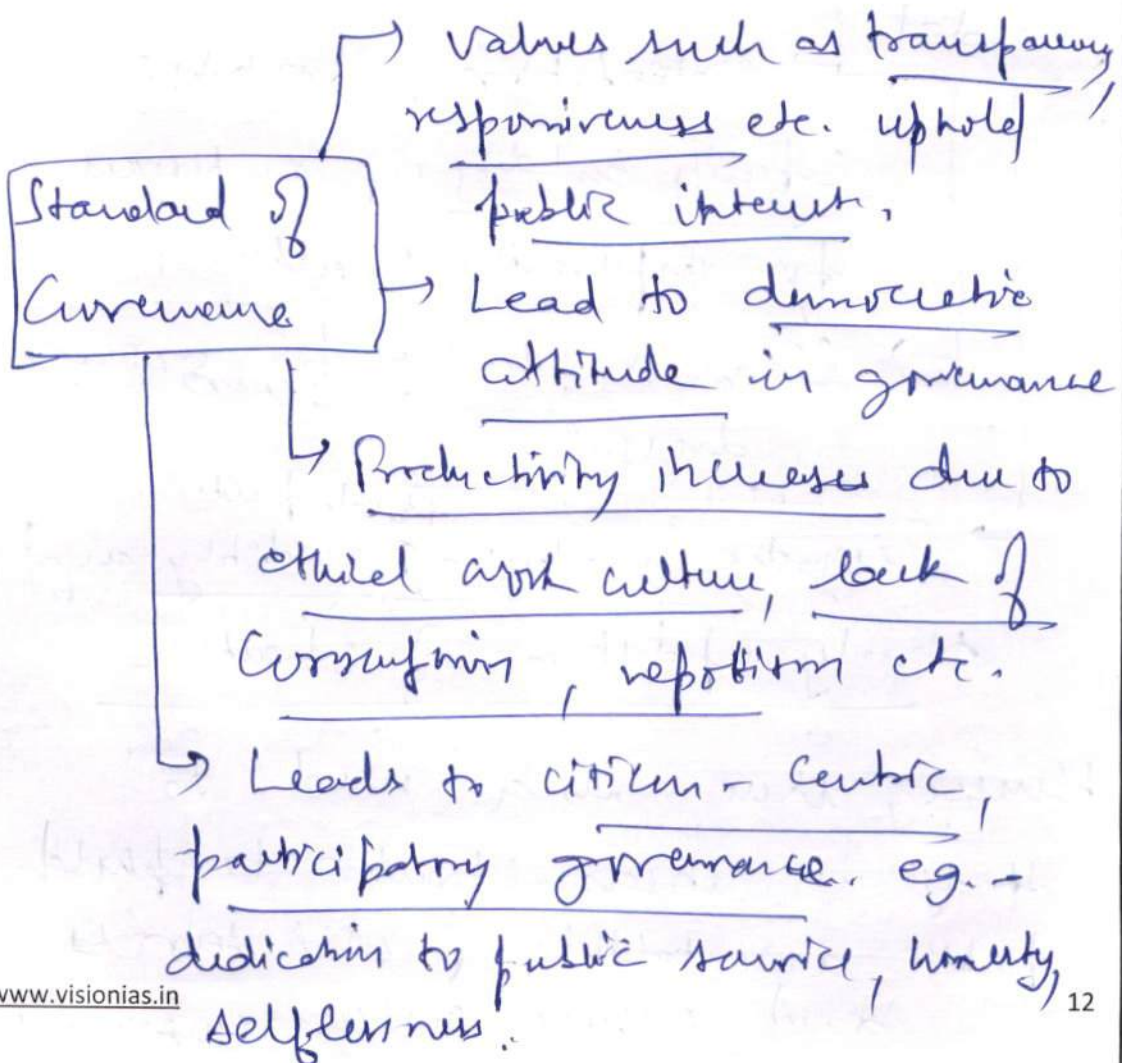 → Values such as transparency,
responsiveness etc. uphold
public interest.
Standard of
Governance
→ Lead to democratic
attitude in governance
→ Productivity increases due to
ethical work culture, lack of
Corruption, nepotism etc.
→ Leads to citizen-centric,
participatory governance. eg. -
dedication to public service, honesty,
selflessness.
www.visionias.in
12